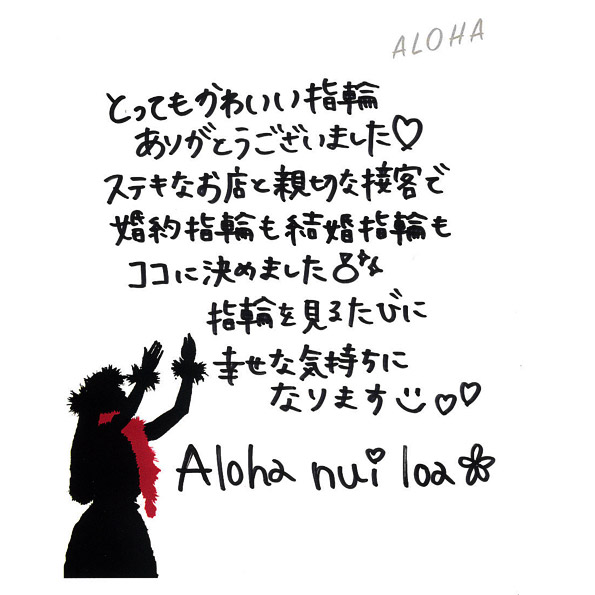 ALOHA
とってもかわいい指輪
ありがとうございました♡
ステキなお店と親切な接客で
婚約指輪も結婚指輪も
ココに決めました
指輪を見るたびに
幸せな気持ちに
なります
Aloha nui loa